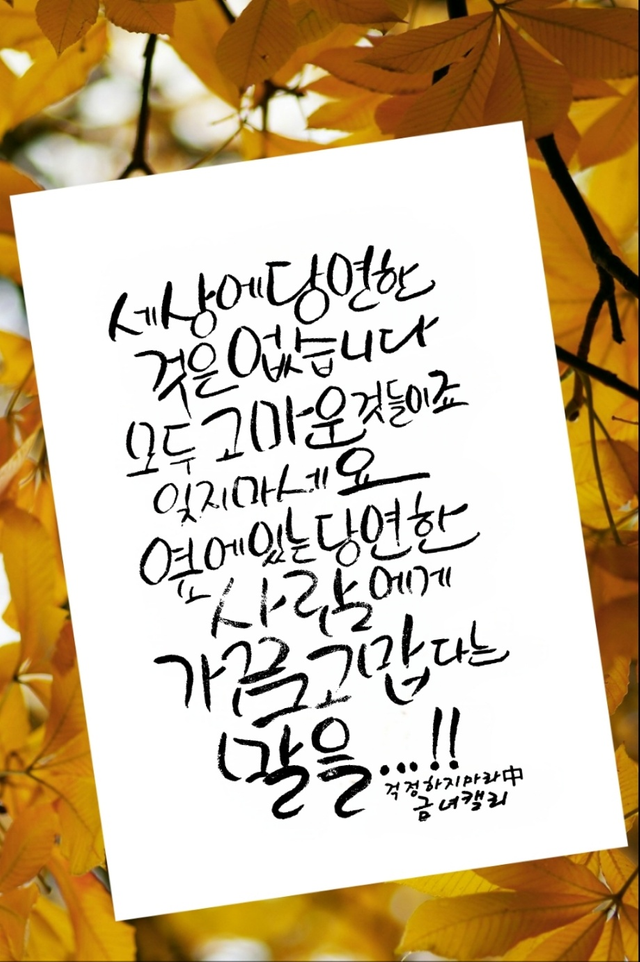 세상에 당연한
것은 없습니다
모두 고마운 것들이죠
잊지마세요
옆에 있는 당연한
사람에게
가끔 고맙다는
말을...!!
걱정하지마라 中
금녀캘리